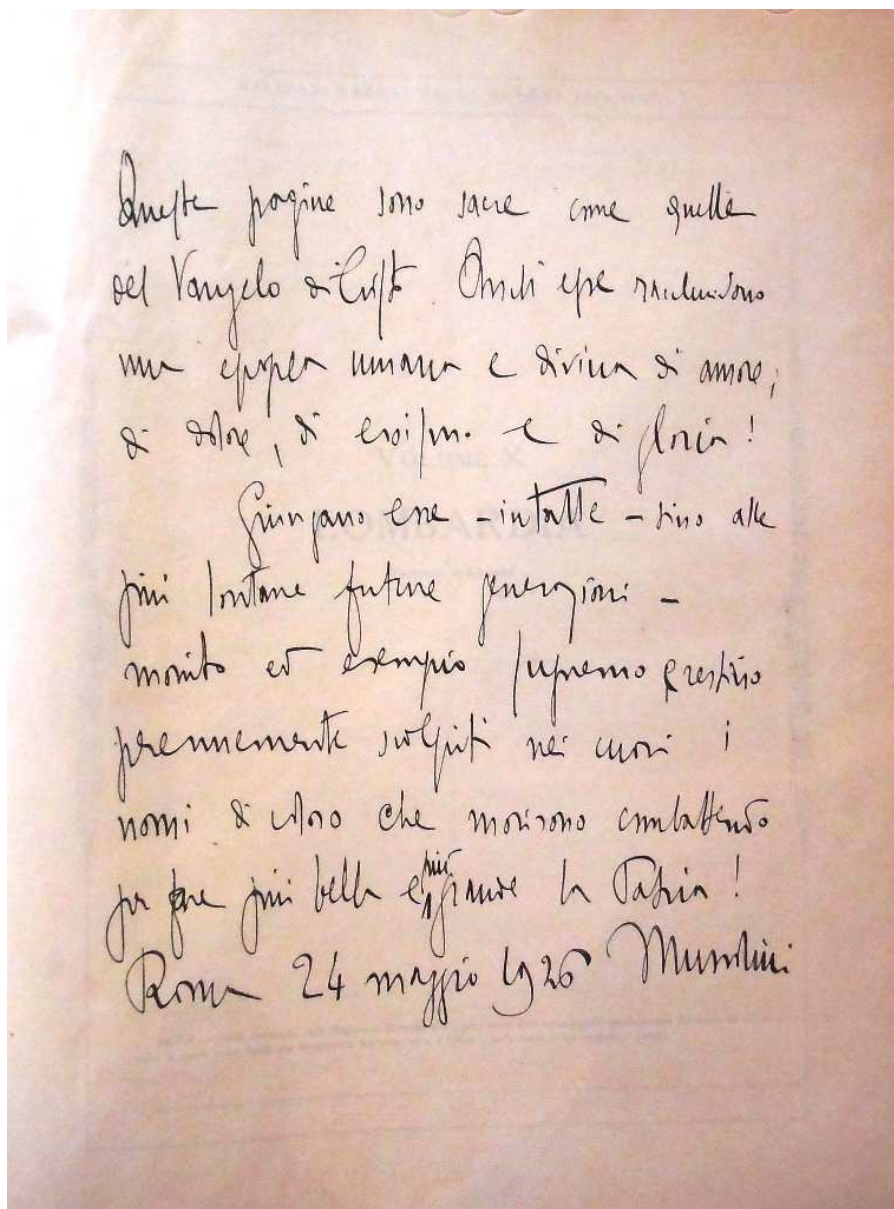 Queste pagine sono sacre come quelle
del Vangelo di Cristo. Anch'esse racchiudono
una epopea umana e divina di amore,
di dolore, di eroismo e di gloria!
Giungano esse - intatte - sino alle
più lontane future generazioni -
monito ed esempio supremo e restino
perennemente scolpiti nei cuori i
nomi di coloro che morirono combattendo
per fare più bella e più grande la Patria!
Roma 24 maggio 1926 Mussolini
VOLUME X
LOMBARDIA